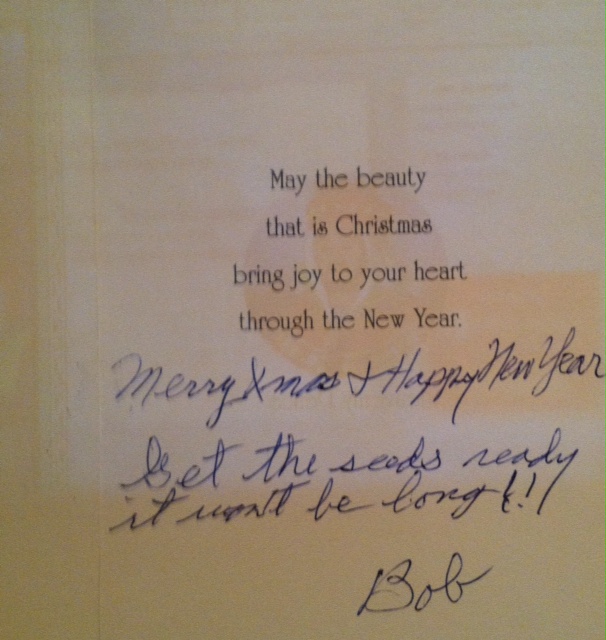 May the beauty
that is Christmas
bring joy to your heart
through the New Year.
Merry Xmas & Happy New Year
Get the seeds ready
it won't be long!!!
Bob